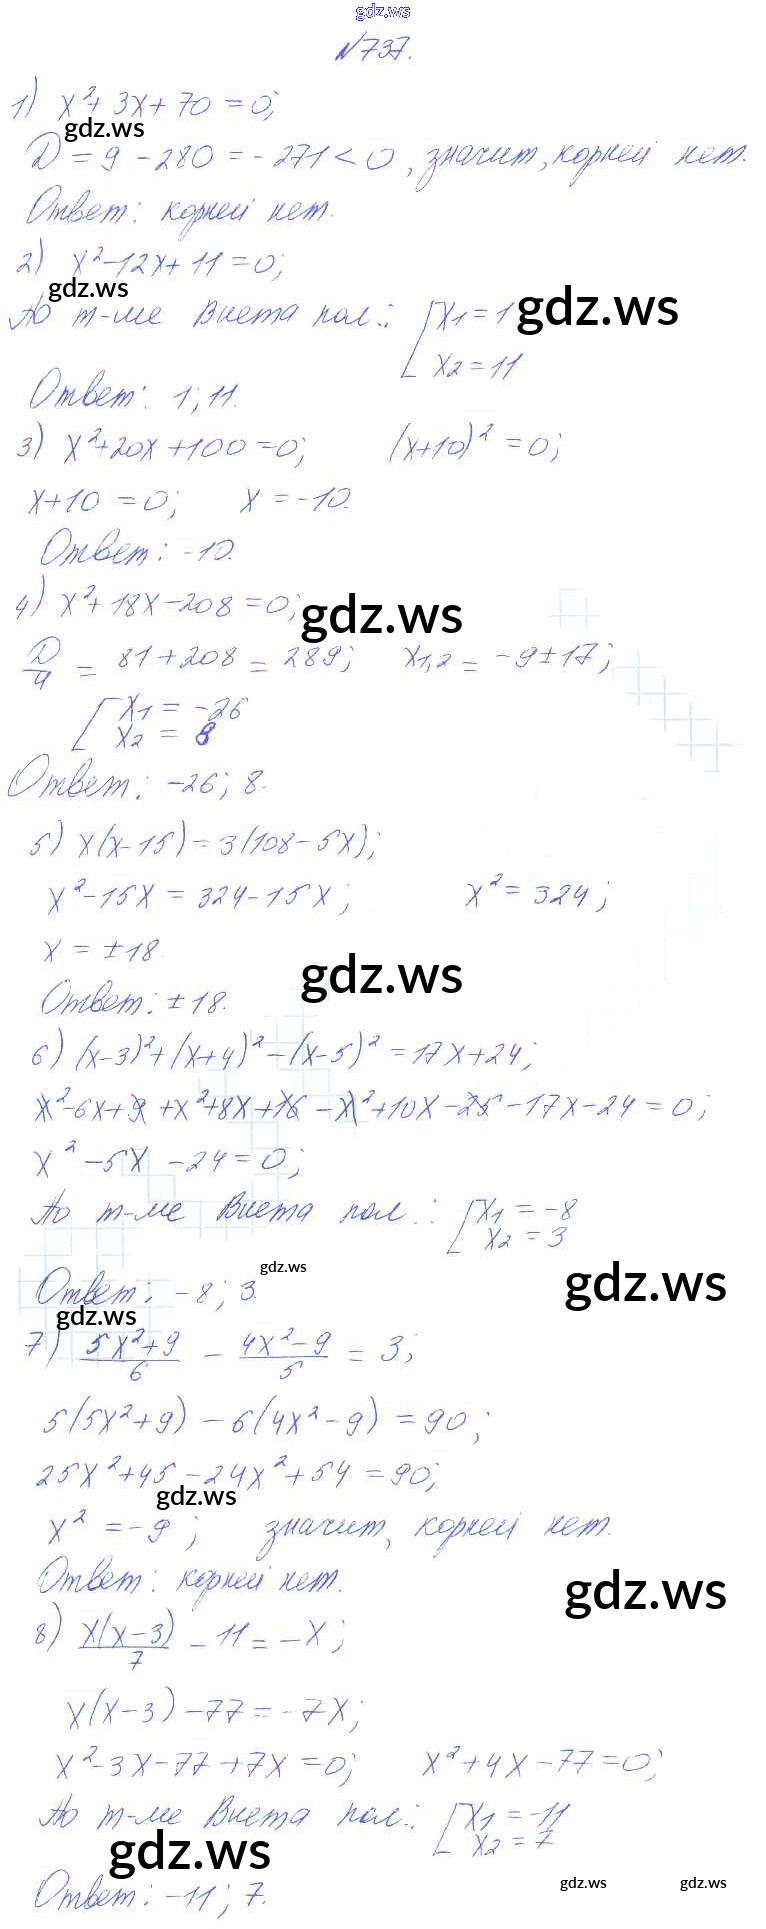 gdz.ws
№737.
1) x²+3x+70=0;
gdz.ws
D=9-280=-271<0, значит, корней нет.
Ответ: корней нет.
2) x²-12x+11=0;
gdz.ws
По т-ме Виета пол.: [x₁=1 gdz.ws
x₂=11
Ответ: 1; 11.
3) x²+20x+100=0; (x+10)²=0;
x+10=0; x=-10.
Ответ: -10.
4) x²+18x-208=0; gdz.ws
D/4 = 81+208 = 289; x₁,₂ = -9±17;
[x₁ = -26
x₂ = 8
Ответ: -26; 8.
5) x(x-15)=3(108-5x);
x²-15x=324-15x; x²=324;
x=±18.
gdz.ws
Ответ: ±18.
6) (x-3)²+(x+4)²-(x-5)²=17x+24;
x²-6x+9+x²+8x+16-x²+10x-25-17x-24=0;
x²-5x-24=0;
По т-ме Виета пол.: [x₁=-8
x₂=3
gdz.ws
gdz.ws
Ответ: -8; 3.
gdz.ws
7) (5x²+9)/6 - (4x²-9)/5 = 3;
5(5x²+9)-6(4x²-9)=90;
25x²+45-24x²+54=90;
gdz.ws
x²=-9; значит, корней нет.
Ответ: корней нет.
gdz.ws
8) x(x-3)/7 - 11 = -x;
x(x-3)-77=-7x;
x²-3x-77+7x=0; x²+4x-77=0;
По т-ме Виета пол.: [x₁=-11
x₂=7
gdz.ws
Ответ: -11; 7.
gdz.ws gdz.ws